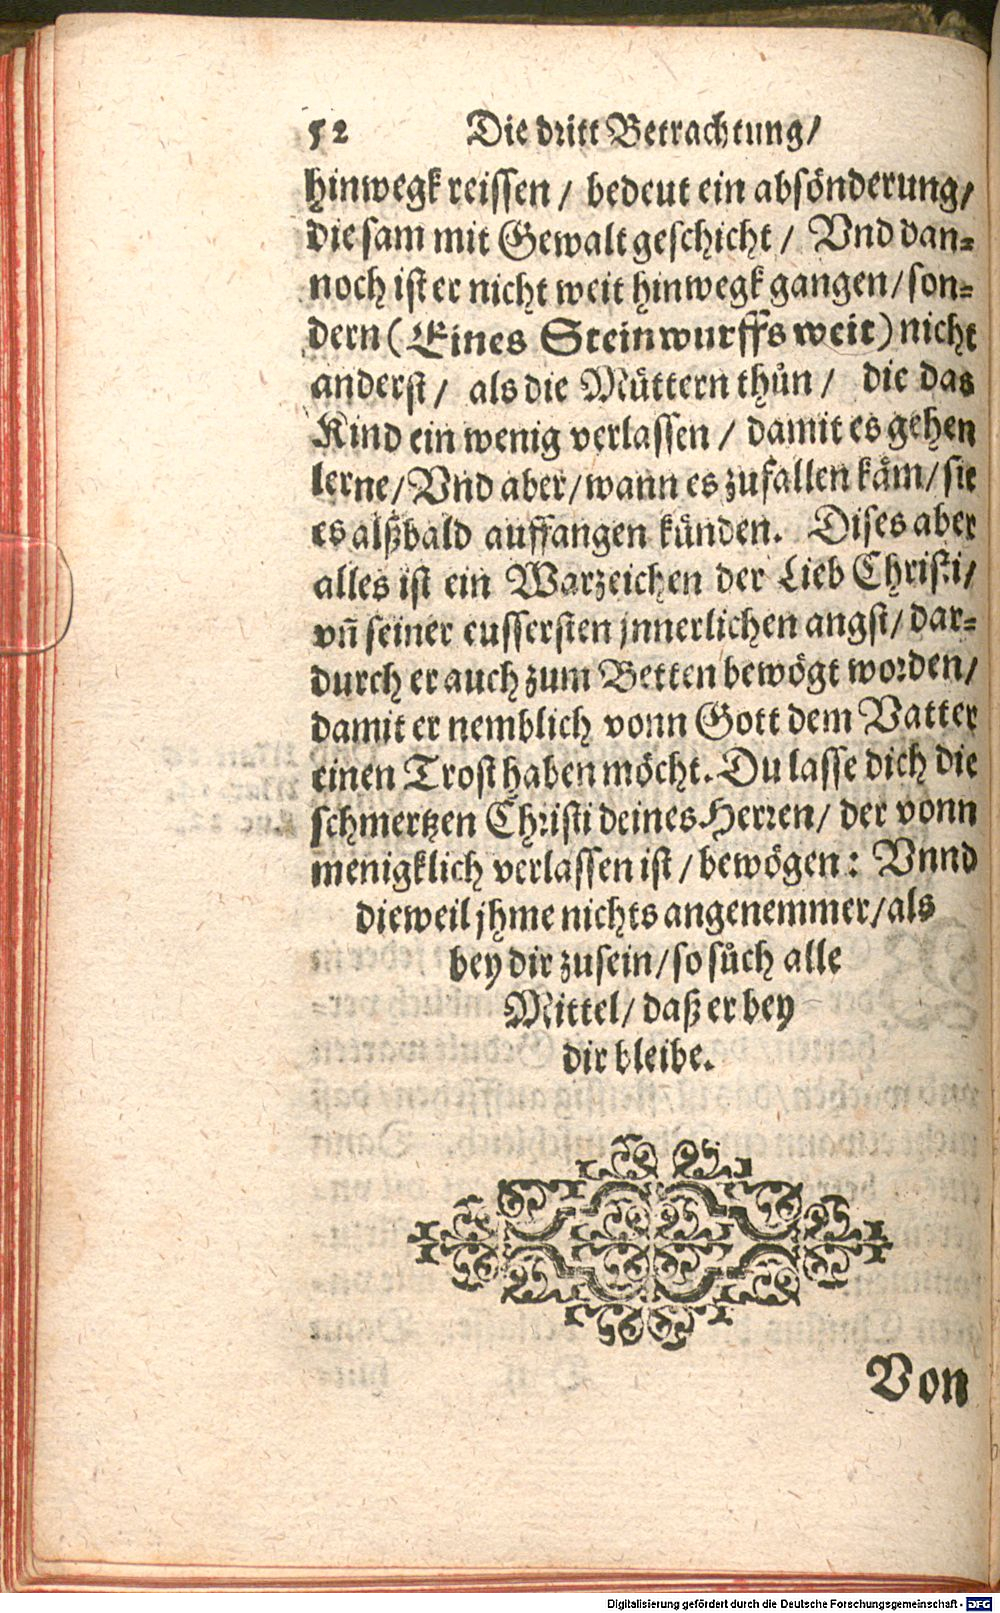 52 Die dritt Betrachtung/
hinwegk reissen / bedeut ein absönderung/
die sam mit Gewalt geschicht / Vnd dan-
noch ist er nicht weit hinwegk gangen/ son-
dern ( Eines Steinwurffs weit ) nicht
anderst / als die Müttern thůn / die das
Kind ein wenig verlassen / damit es gehen
lerne/ Vnd aber/ wann es zufallen käm/ sie
es alßbald auffangen künden. Dises aber
alles ist ein Warzeichen der Lieb Christi/
vñ seiner eussersten jnnerlichen angst/ dar-
durch er auch zum Betten bewögt worden/
damit er nemblich vonn Gott dem Vatter
einen Trost haben möcht. Du lasse dich die
schmertzen Christi deines Herren/ der vonn
menigklich verlassen ist / bewögen: Vnnd
dieweil jhme nichts angenemmer/ als
bey dir zusein/ so sůch alle
Mittel/ daß er bey
dir bleibe.
Von
Digitalisierung gefördert durch die Deutsche Forschungsgemeinschaft - DFG